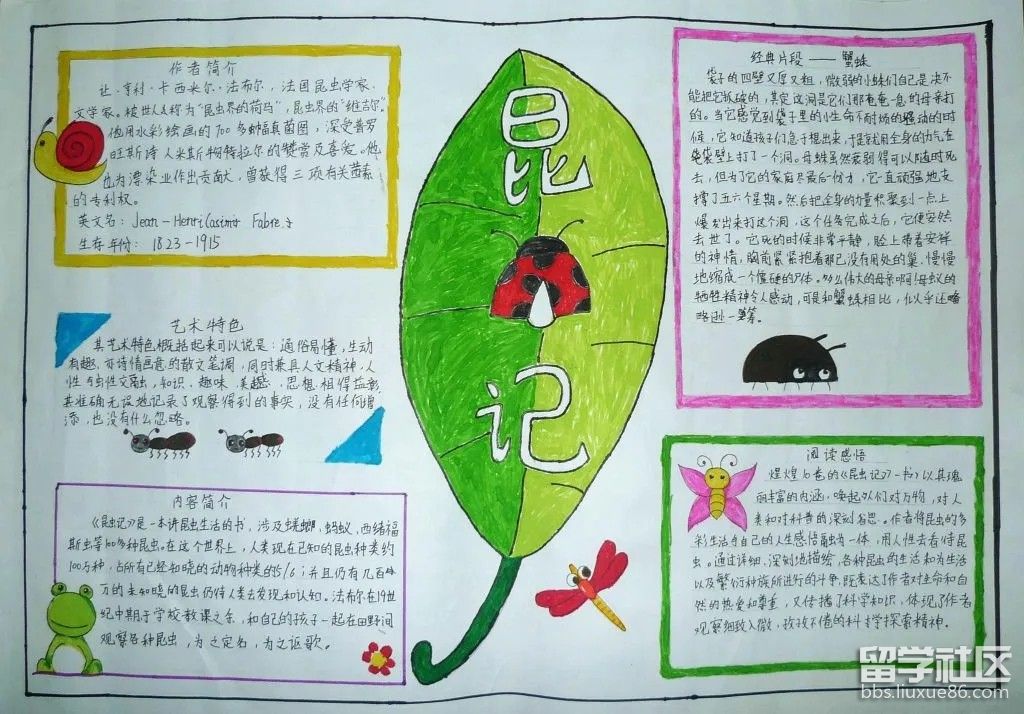 作者简介
让·亨利·卡西米尔·法布尔，法国昆虫学家、
文学家。被世人称为“昆虫界的荷马”，昆虫界的“维吉尔”。
他用水彩绘画的700多幅真菌图，深受普罗
旺斯诗人米斯特拉尔的赞赏及喜爱。他
也为漂染业作出贡献，曾获得三项有关茜素
的专利权。
英文名：Jean-Henri Casimir Fabre
生存年份：1823-1915
艺术特色
其艺术特色概括起来可以说是：通俗易懂，生动
有趣，
诗情画意的散文笔调，同时兼具人文精神，人
性与虫性交融，知识、趣味、美感、思想相得益彰
其准确无误地记录了观察得到的事实，没有任何增
添，也没有什么忽略。
内容简介
《昆虫记》是一本讲昆虫生活的书，涉及蜣螂、蚂蚁、西绪福
斯虫等100多种昆虫。在这个世界上，人类现在已知的昆虫种类约
100万种，占所有已经知晓的动物种类的5/6；并且仍有几百
万的未知晓的昆虫仍待人类去发现和认知。法布尔在19世
纪中期于学校教课之余，和自己的孩子一起在田野间
观察各种昆虫，为之定名，为之讴歌。
昆
虫
记
经典片段——蟹蛛
袋子的四壁又厚又粗，微弱的小蛛们自己是决不
能把它抓破的，其实这洞是它们那奄奄一息的母亲打
的。当它感觉到袋子里的小生命不耐烦的骚动的时
候，它知道孩子们急于想出来，于是就用全身的力气在
袋壁上打了一个洞。母蛛虽然衰弱得可以随时死
去，但为了它的家庭尽最后份力，它一直顽强地支
撑了五六个星期。然后把全身的力量积聚到一点上
爆发出来打这个洞，这个任务完成之后，它便安然
去世了。它死的时候非常平静，脸上带着安祥
的神情，胸前紧紧抱着那已没有用处的巢，慢慢
地缩成一个僵硬的尸体。多么伟大的母亲啊！母蚁的
牺牲精神令人感动，可是和蟹蛛相比，似乎还略
略逊一筹。
阅读感悟
煌煌10卷的《昆虫记》一书以其瑰
丽丰富的内涵，唤起人们对万物，对人
类和对科普的深刻省思。作者将昆虫的多
彩生活与自己的人生感悟融为一体，用人性去看待昆
虫。通过详细、深刻地描绘，各种昆虫的生活和为生活
以及繁衍种族所进行的斗争，既表达了作者对生命和自
然的热爱和尊重，又传播了科学知识，体现了作者
观察细致入微，孜孜不倦的科学探索精神。
留学社区
bbs.liuxue86.com